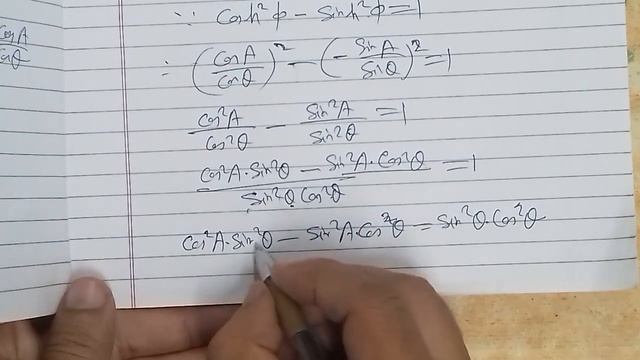 ∵ Cosh²φ − Sinh²φ = 1
CosA/Cosθ
∴ (CosA/Cosθ)² − (−SinA/Sinθ)² = 1
Cos²A/Cos²θ − Sin²A/Sin²θ = 1
Cos²A·Sin²θ − Sin²A·Cos²θ/Sin²θ Cos²θ = 1
Cos²A·Sin²θ − Sin²A·Cos²θ = Sin²θ·Cos²θ